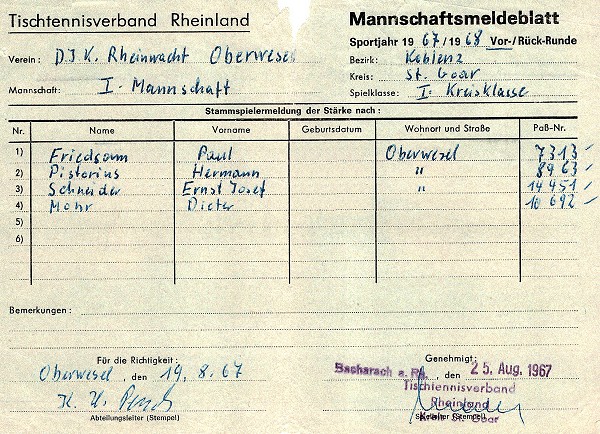 Tischtennisverband Rheinland
Mannschaftsmeldeblatt
Sportjahr 1967/1968 Vor-/Rück-Runde
Verein: DJK. Rheinwacht Oberwesel
Bezirk: Koblenz
Kreis: St. Goar
Mannschaft: I. Mannschaft
Spielklasse: I. Kreisklasse
Stammspielermeldung der Stärke nach:
Nr. Name Vorname Geburtsdatum Wohnort und Straße Paß-Nr.
1) Friedsam Paul Oberwesel 7313
2) Pistorius Hermann " 8963
3) Schneider Ernst Josef " 14451
4) Mohr Dieter 10692
5)
6)
Bemerkungen:
Für die Richtigkeit:
Genehmigt:
Oberwesel, den 19.8.67
Bacharach a. Rh., den 25. Aug. 1967
Tischtennisverband
Rheinland
Kreis St. Goar
K. H.
Abteilungsleiter (Stempel)
(Stempel)